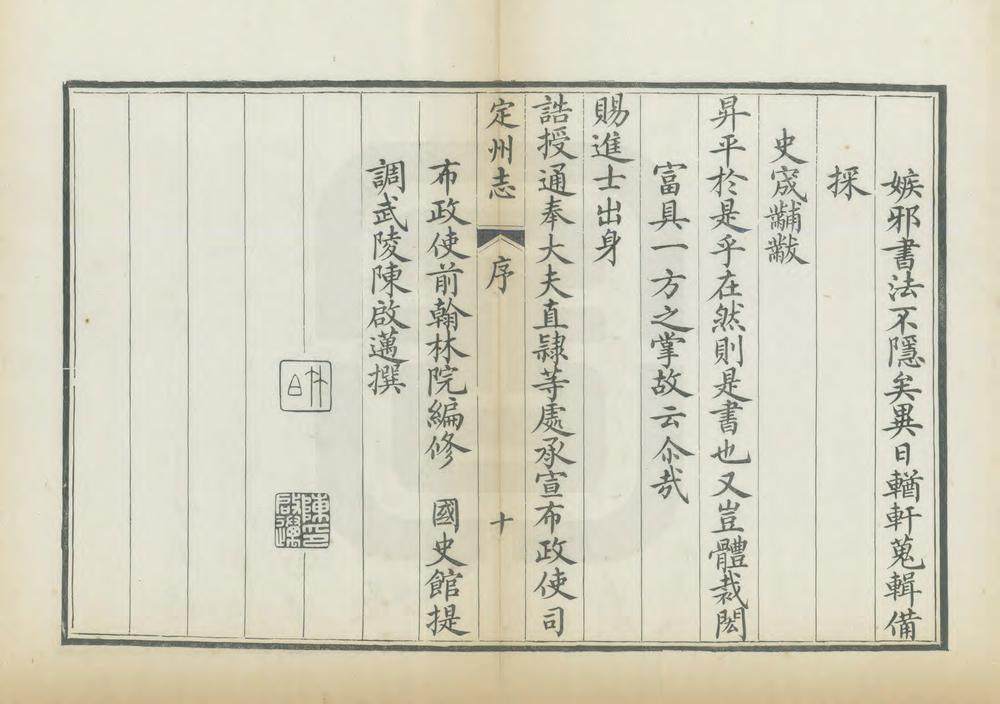 嫉邪書法不隱矣異日輶軒蒐輯備
採
史宬黼黻
昇平於是乎在然則是書也又豈體裁閎
富具一方之掌故云尒哉
賜進士出身
誥授通奉大夫直隸等處承宣布政使司
定州志 序 十
布政使前翰林院編修 國史館提
調武陵陳啟邁撰
陳印啟邁